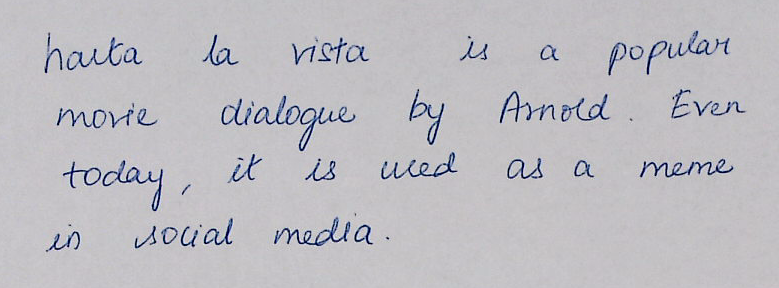 hasta la vista is a popular
movie dialogue by Arnold. Even
today, it is used as a meme
in social media.